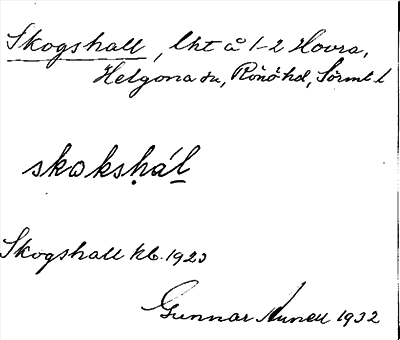 Skogshall, lht å 1-2 Hovra,
Helgona sn, Rönö hd, Sörml. l
skokshál
Skogshall kb. 1923
Gunnar 1932